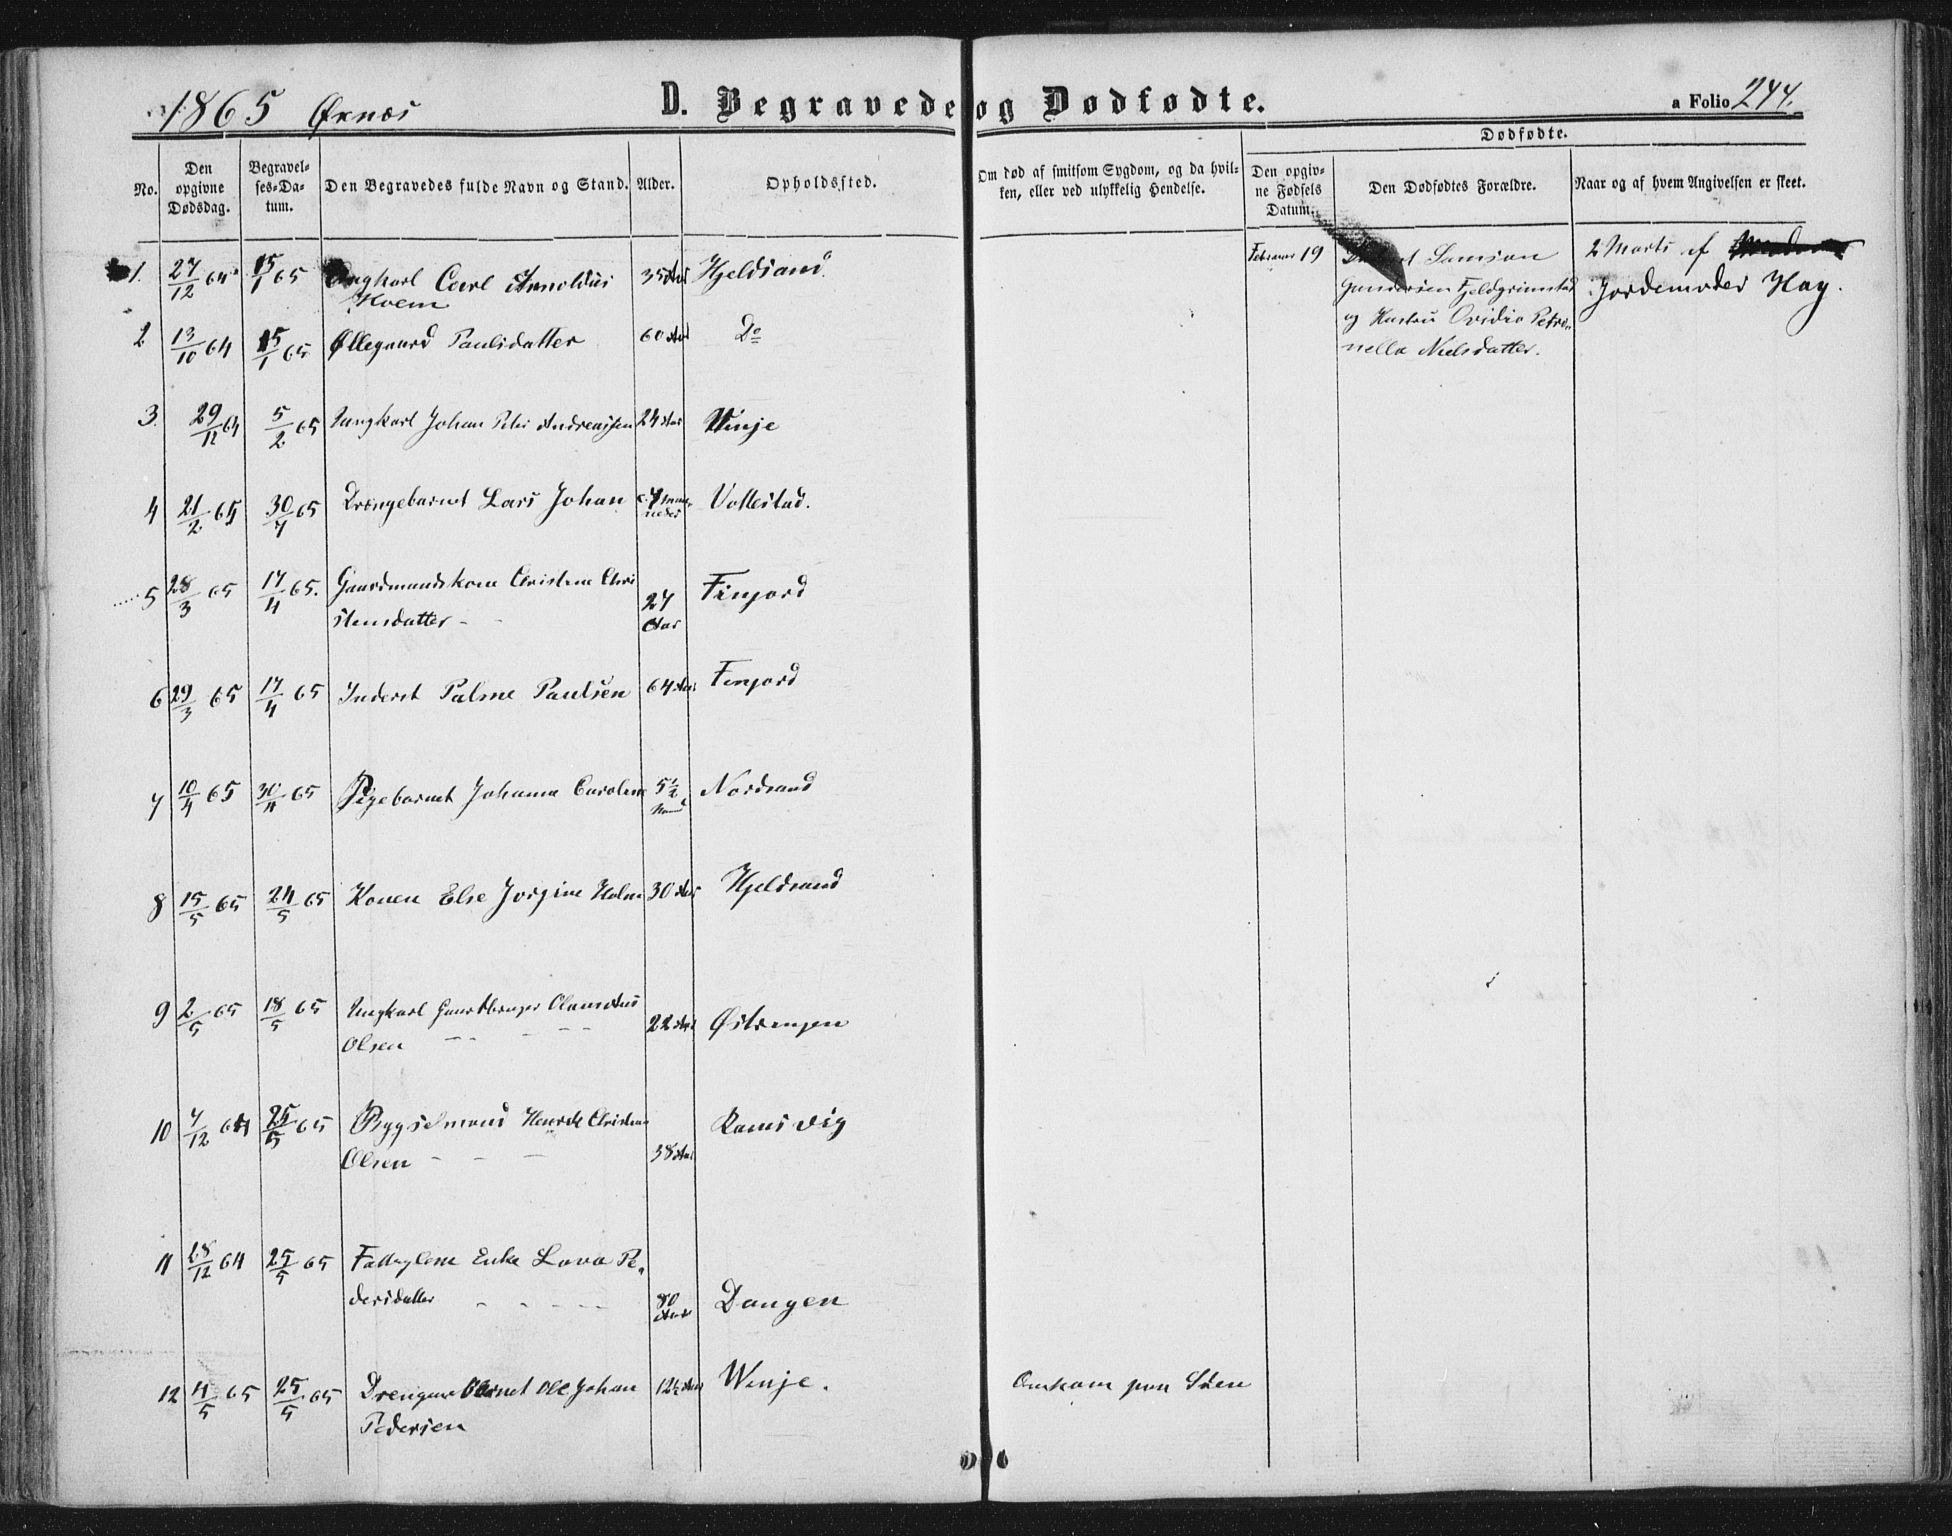 1865 Øxnæs
D. Begravede og Dødfødte.
a Folio 244.
Dødfødte.
No.
Den opgivne Dødsdag.
Begravelses-Datum.
Den Begravedes fulde Navn og Stand.
Alder.
Opholdssted.
Om død af smitsom Sygdom, og da hvilken, eller ved ulykkelig Hendelse.
Den opgivne Fødsels Datum.
Den Dødfødtes Forældre.
Naar og af hvem Angivelsen er skeet.
1. 27/12 64 15/1 65 Ungkarl Carl Arnoldus 35 Aar Hjeldsand
Hoem
2 13/10 64 15/1 65 Øllegaard Paulsdatter 60 Aar Do
3. 29/11 64 5/2 65 Ungkarl Johan Peter Andreassen 24 Aar Vinje
4 21/2 64 30/7 65 Drengebarnet Lars Johan 7 Maaneder Vottestad.
5 28/3 65 17/4 65. Gaardmandskone Christine Christensdatter 27 Aar Finjord
6 29/3 65 17/4 65 Inderst Palme Paulsen 64 Aar Finjord
7 10/4 65 30/4 65 Pigebarnet Johanna Caroline 5 1/2 Maaned Nordsand
8 15/5 65 24/5 65 Konen Else Jorgine Holm 30 Aar Hjeldsand
9 2/5 65 18/5 65 Ungkarl Gaardbruger 22 Aar Østrengen
Olsen
10 7/12 64 25/5 65 Bygselmand Christian 38 Aar Ramsvig
Olsen
11 28/12 64 25/5 65 Fattiglem Enke Lava Pedersdatter 80 Aar Dangen
12 4/5 65 25/5 65 Drengebarnet Ole Johan 12 1/2 Aar Winje.
Pedersen
Omkom paa Søen
Februar 19
Samson
Gundersen Fjeldgrimstad
og Hustru Ovidia Petronella Nielsdatter.
2 Marts af
Jordemoder Hay.